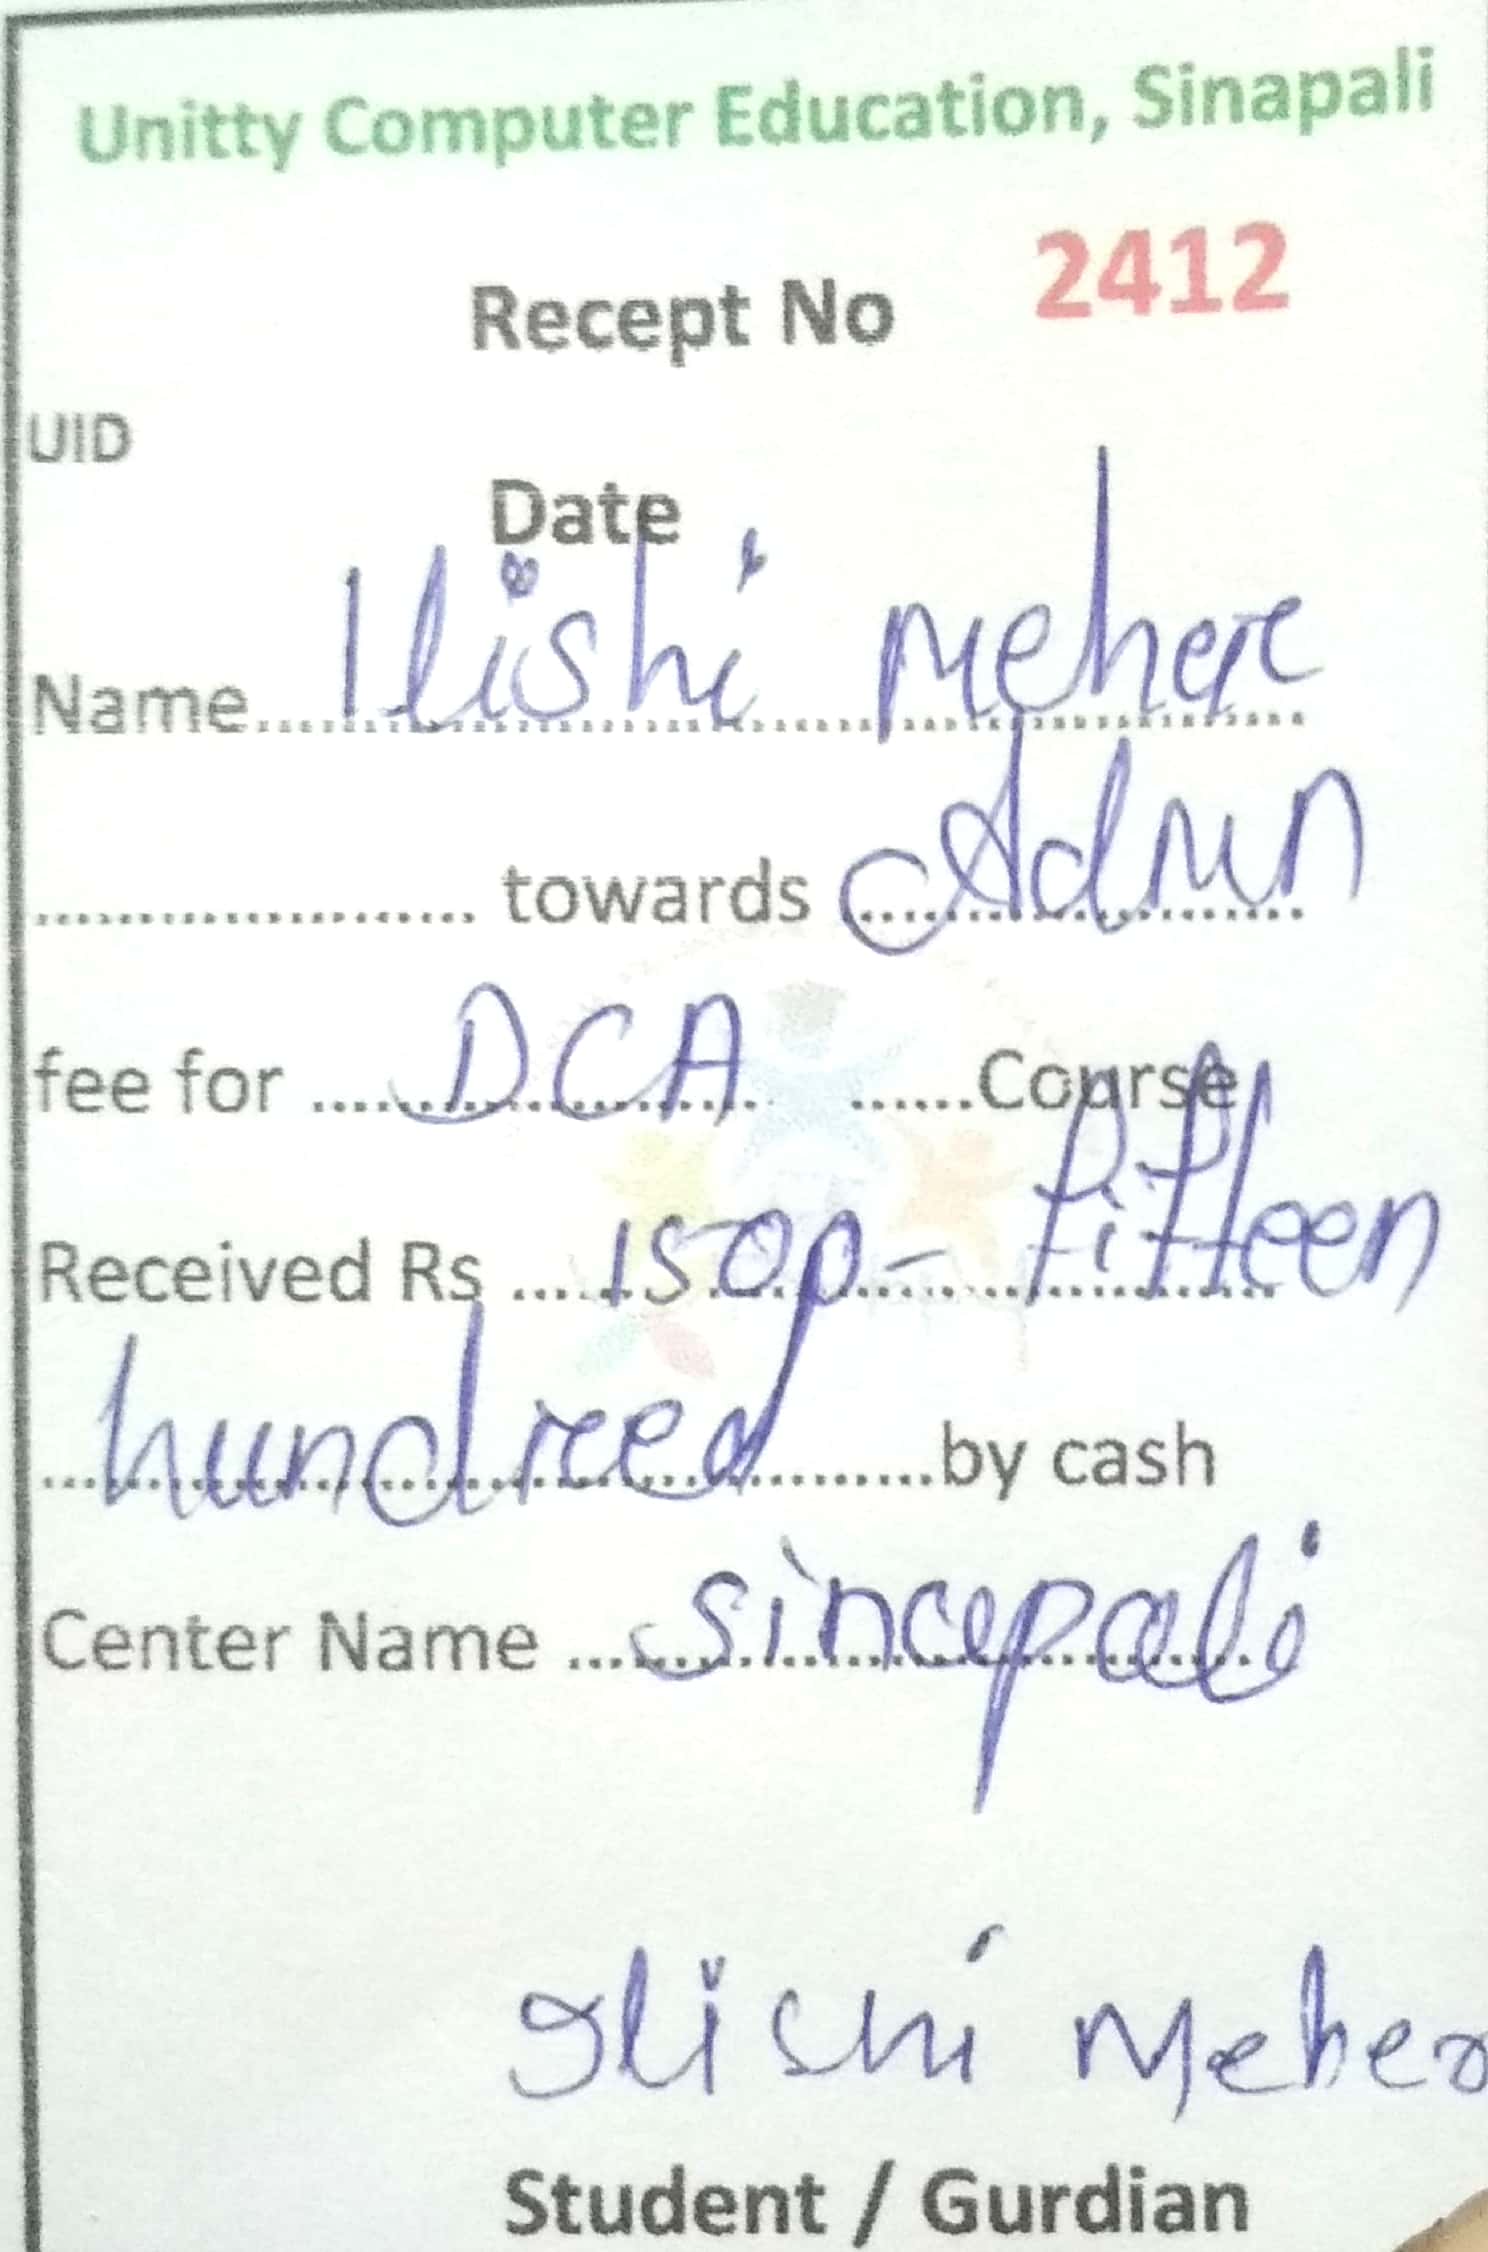 Unitty Computer Education, Sinapali
Recept No 2412
UID
Date
Name Ilishi Meher
towards Admn
fee for DCA Course
Received Rs 1500/- fifteen
hundred by cash
Center Name Sinapali
Ilishi Meher
Student / Gurdian